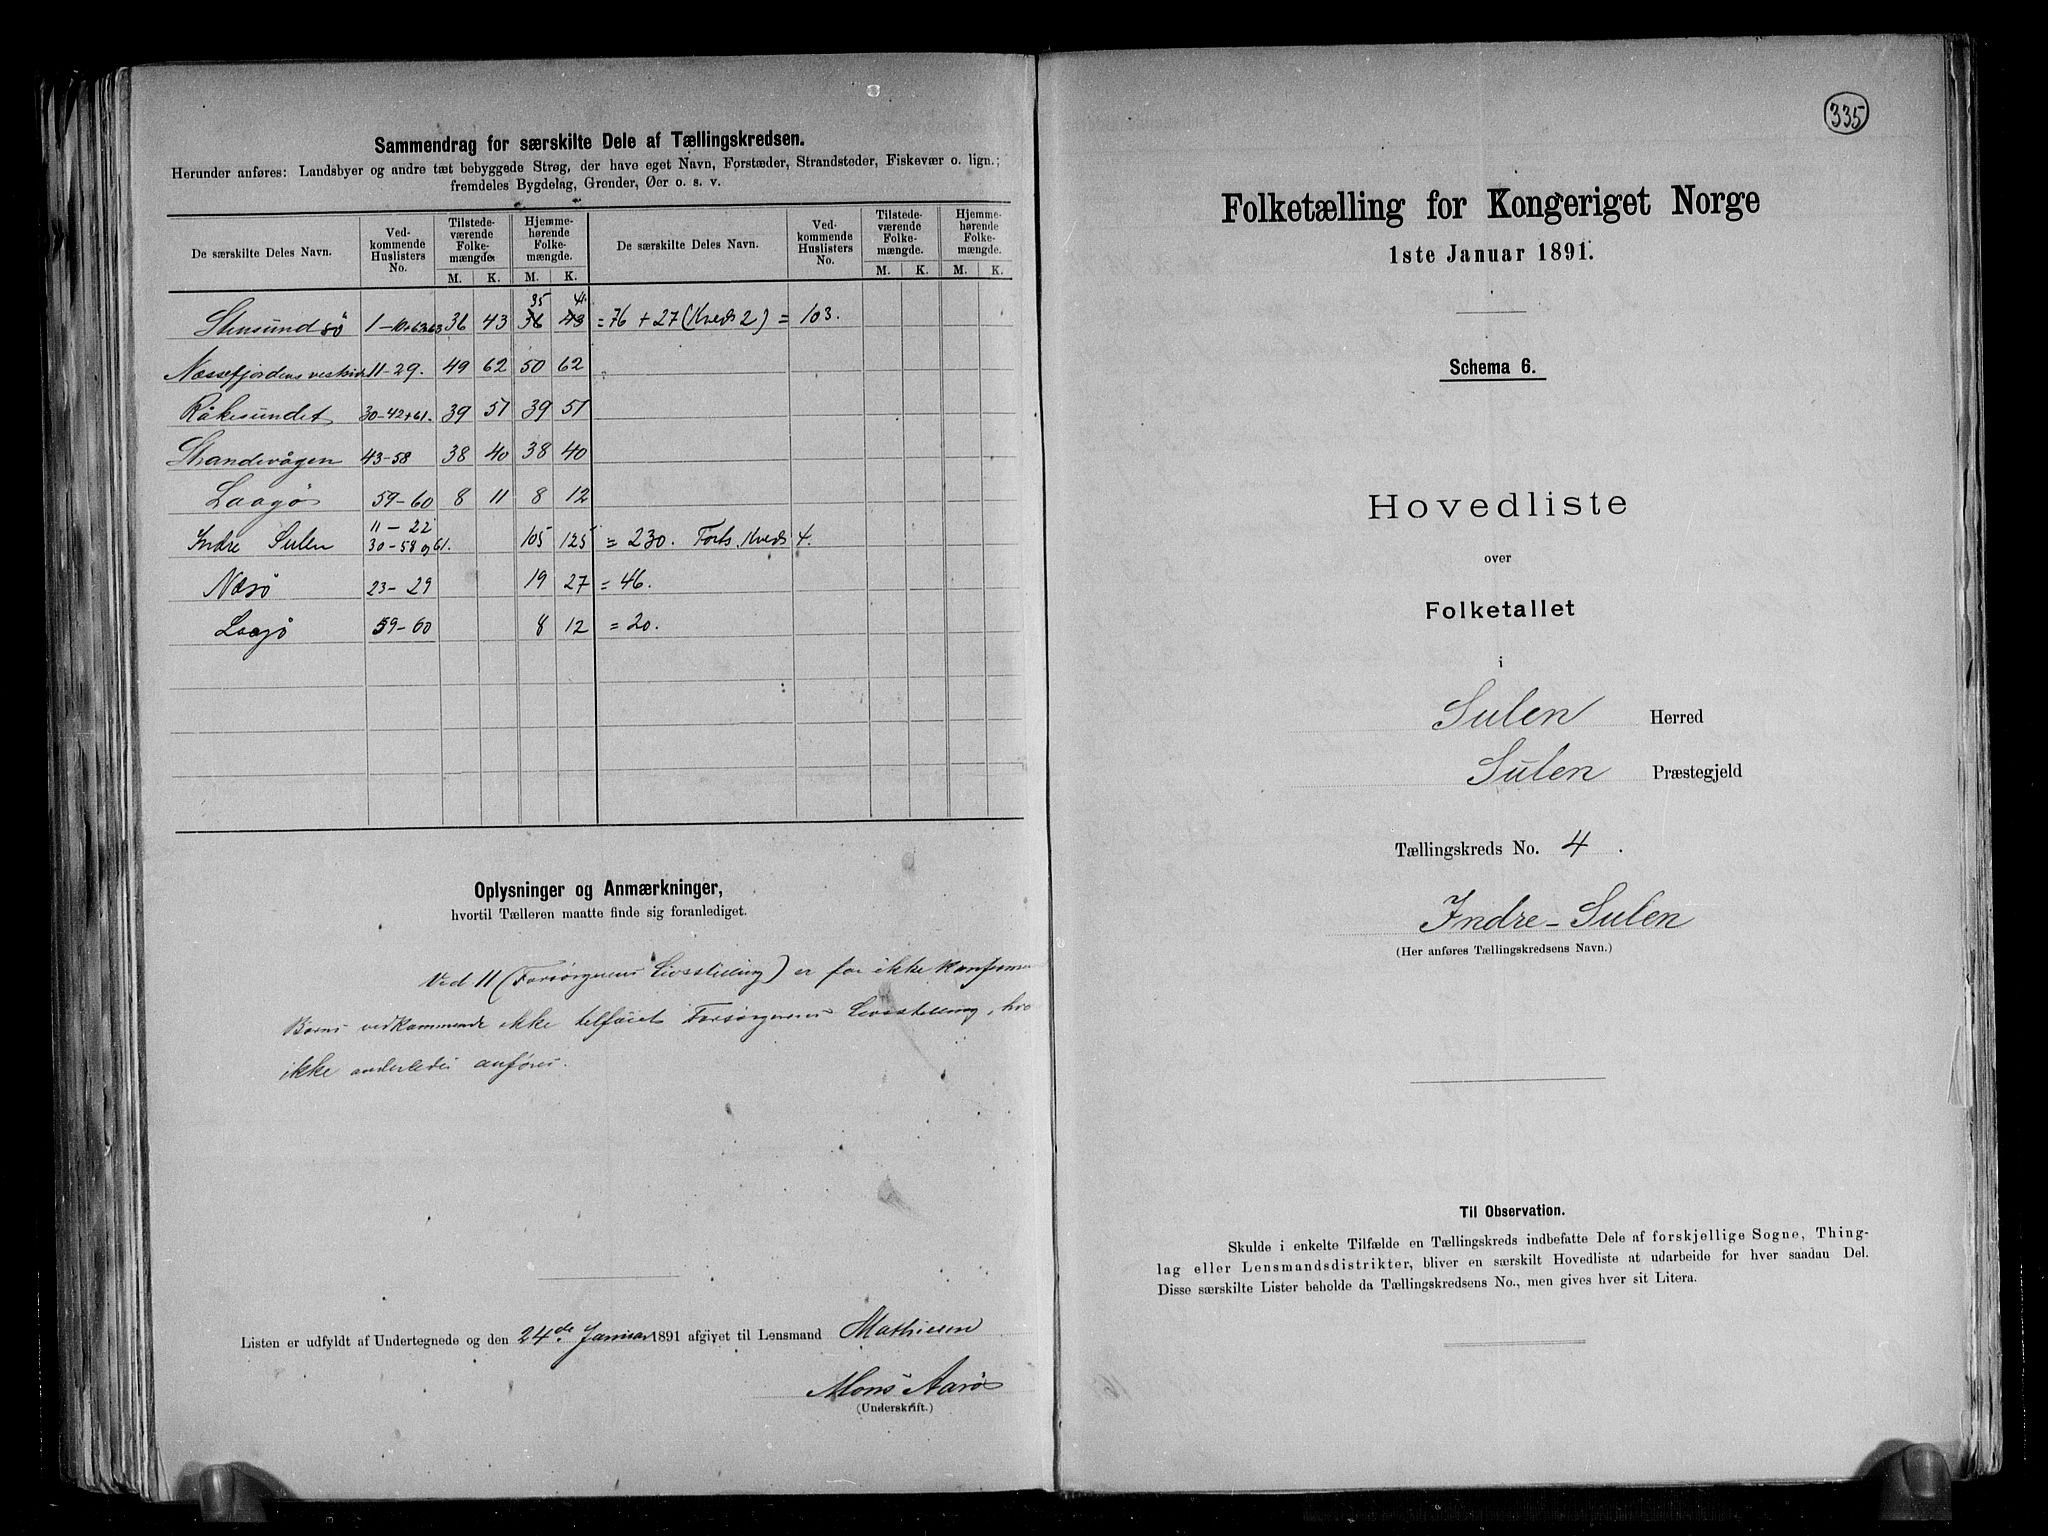 Sammendrag for særskilte Dele af Tællingskredsen.
Herunder anføres: Landsbyer og andre tæt bebyggede Strøg, der have eget Navn, Forstæder, Strandsteder, Fiskevær o. lign.;
fremdeles Bygdelag, Grender, Øer o. s. v.
De særskilte Deles Navn. Ved-kommende Huslisters No. Tilstede-værende Folke-mængde. Hjemme-hørende Folke-mængde. De særskilte Deles Navn. Ved-kommende Huslisters No. Tilstede-værende Folke-mængde. Hjemme-hørende Folke-mængde.
M. K. M. K. M. K. M. K.
35 41
Stensundsø 1-10+62,63 36 43 36 43 = 76 + 27 (Kreds 2) = 103.
Næssefjordens vestside 11-29. 49 62 50 62
Råkesundet 30-42+61. 39 51 39 51
Strandevågen 43-58 38 40 38 40
Laagø 59-60 8 11 8 12
11-22
Indre Sulen 30-58 og 61. 105 125 = 230. Forts. Kreds 4.
Næsø 23-29 19 27 = 46.
Laagø 59-60 8 12 = 20.
Oplysninger og Anmærkninger,
hvortil Tælleren maatte finde sig foranlediget.
Ved 11 (Forsørgerens Livsstilling) er for ikke
Børns vedkommende ikke tilføiet Forsørgerens Livsstilling,
ikke anderledes anføres.
Listen er udfyldt af Undertegnede og den 24de Januar 1891 afgivet til Lensmand Mathiesen
Mons Aarø
(Underskrift.)
335
Folketælling for Kongeriget Norge
1ste Januar 1891.
Schema 6.
Hovedliste
over
Folketallet
i
Sulen Herred
Sulen Præstegjeld
Tællingskreds No. 4.
Indre-Sulen
(Her anføres Tællingskredsens Navn.)
Til Observation.
Skulde i enkelte Tilfælde en Tællingskreds indbefatte Dele af forskjellige Sogne, Thing-
lag eller Lensmandsdistrikter, bliver en særskilt Hovedliste at udarbeide for hver saadan Del.
Disse særskilte Lister beholde da Tællingskredsens No., men gives hver sit Litera.